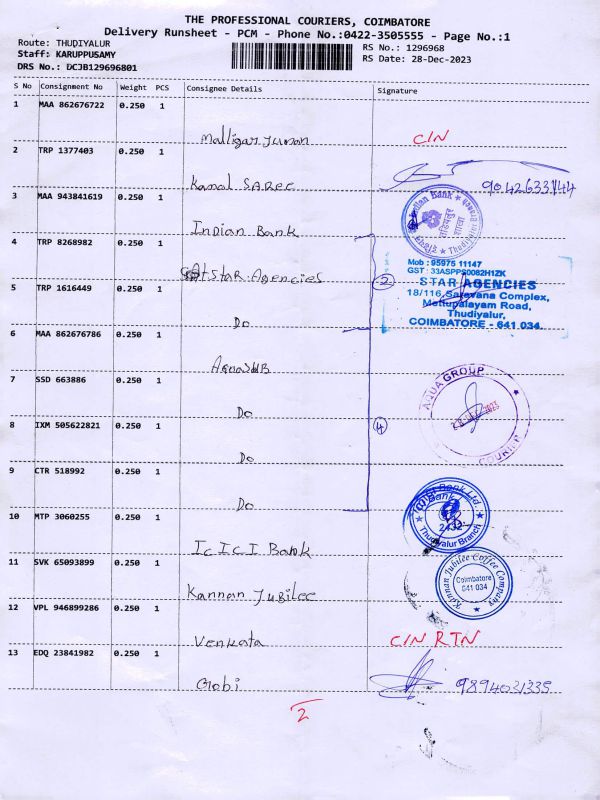 THE PROFESSIONAL COURIERS, COIMBATORE
Delivery Runsheet - PCM - Phone No.:0422-3505555 - Page No.:1
Route: THUDIYALUR
Staff: KARUPPUSAMY
DRS No.: DCJB129696801
RS No.: 1296968
RS Date: 28-Dec-2023
S No Consignment No Weight PCS Consignee Details Signature
1 MAA 862676722 0.250 1
CIN
2 TRP 1377403 0.250 1
Kamal 9042633144
3 MAA 943841619 0.250 1
Indian Bank
4 TRP 8268982 0.250 1
Star Agencies
2
Mob : 95975 11147
GST : 33ASPPS0082H1ZK
STAR AGENCIES
18/116, Saravana Complex,
Mettupalayam Road,
Thudiyalur,
COIMBATORE - 641 034.
5 TRP 1616449 0.250 1
Do
6 MAA 862676786 0.250 1
AquaSUB
AQUA GROUP
COURIER
7 SSD 663886 0.250 1
Do
8 IXM 505622821 0.250 1
4
Do
9 CTR 518992 0.250 1
Do
10 MTP 3060255 0.250 1
ICICI Bank
Bank Ltd.
2432
Thudiyalur Branch
11 SVK 65093899 0.250 1
Kannan Jubilee
Kannan Jubilee Coffee Company
Coimbatore
641 034
12 VPL 946899286 0.250 1
Venkata CIN RTN
13 EDQ 23841982 0.250 1
Gobi 9894031335
2